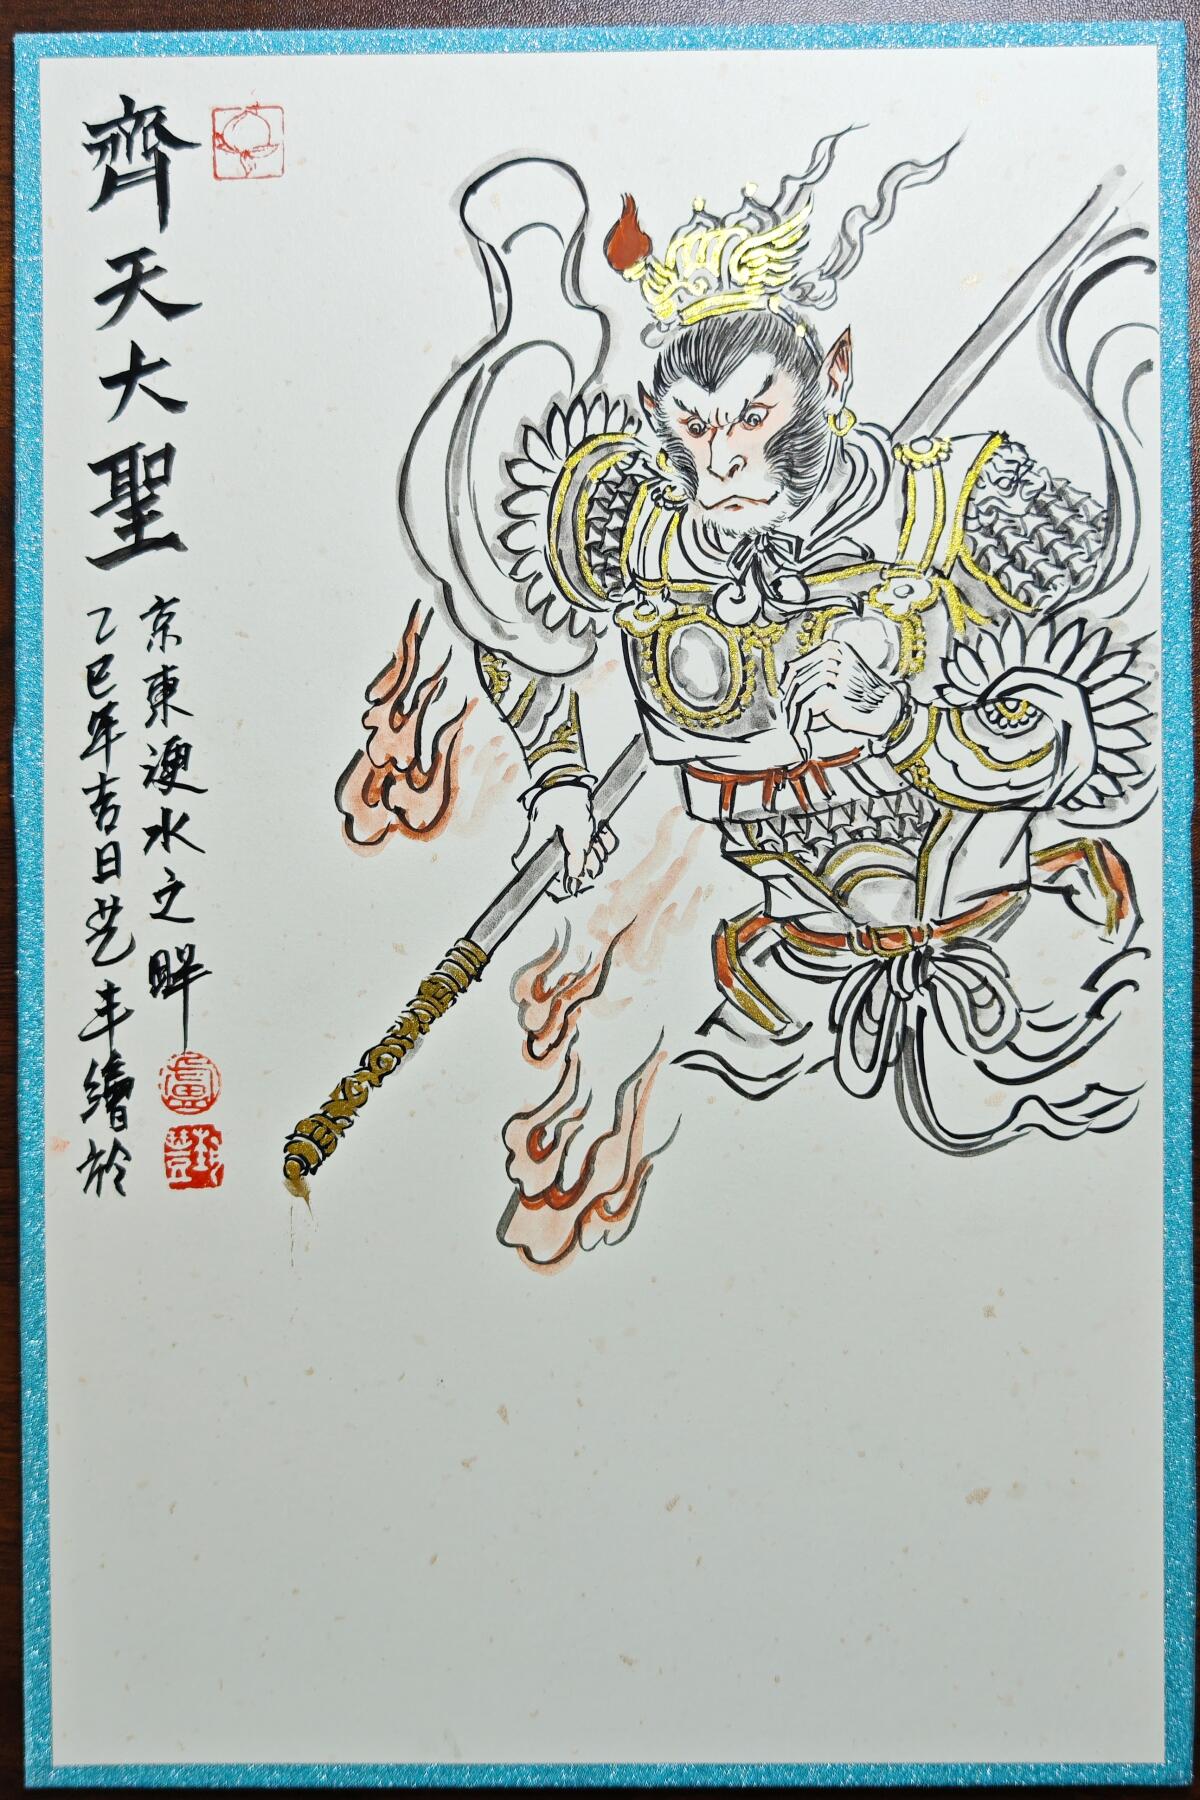 齊天大聖
乙巳年吉日艺丰繪於
京東浭水之畔